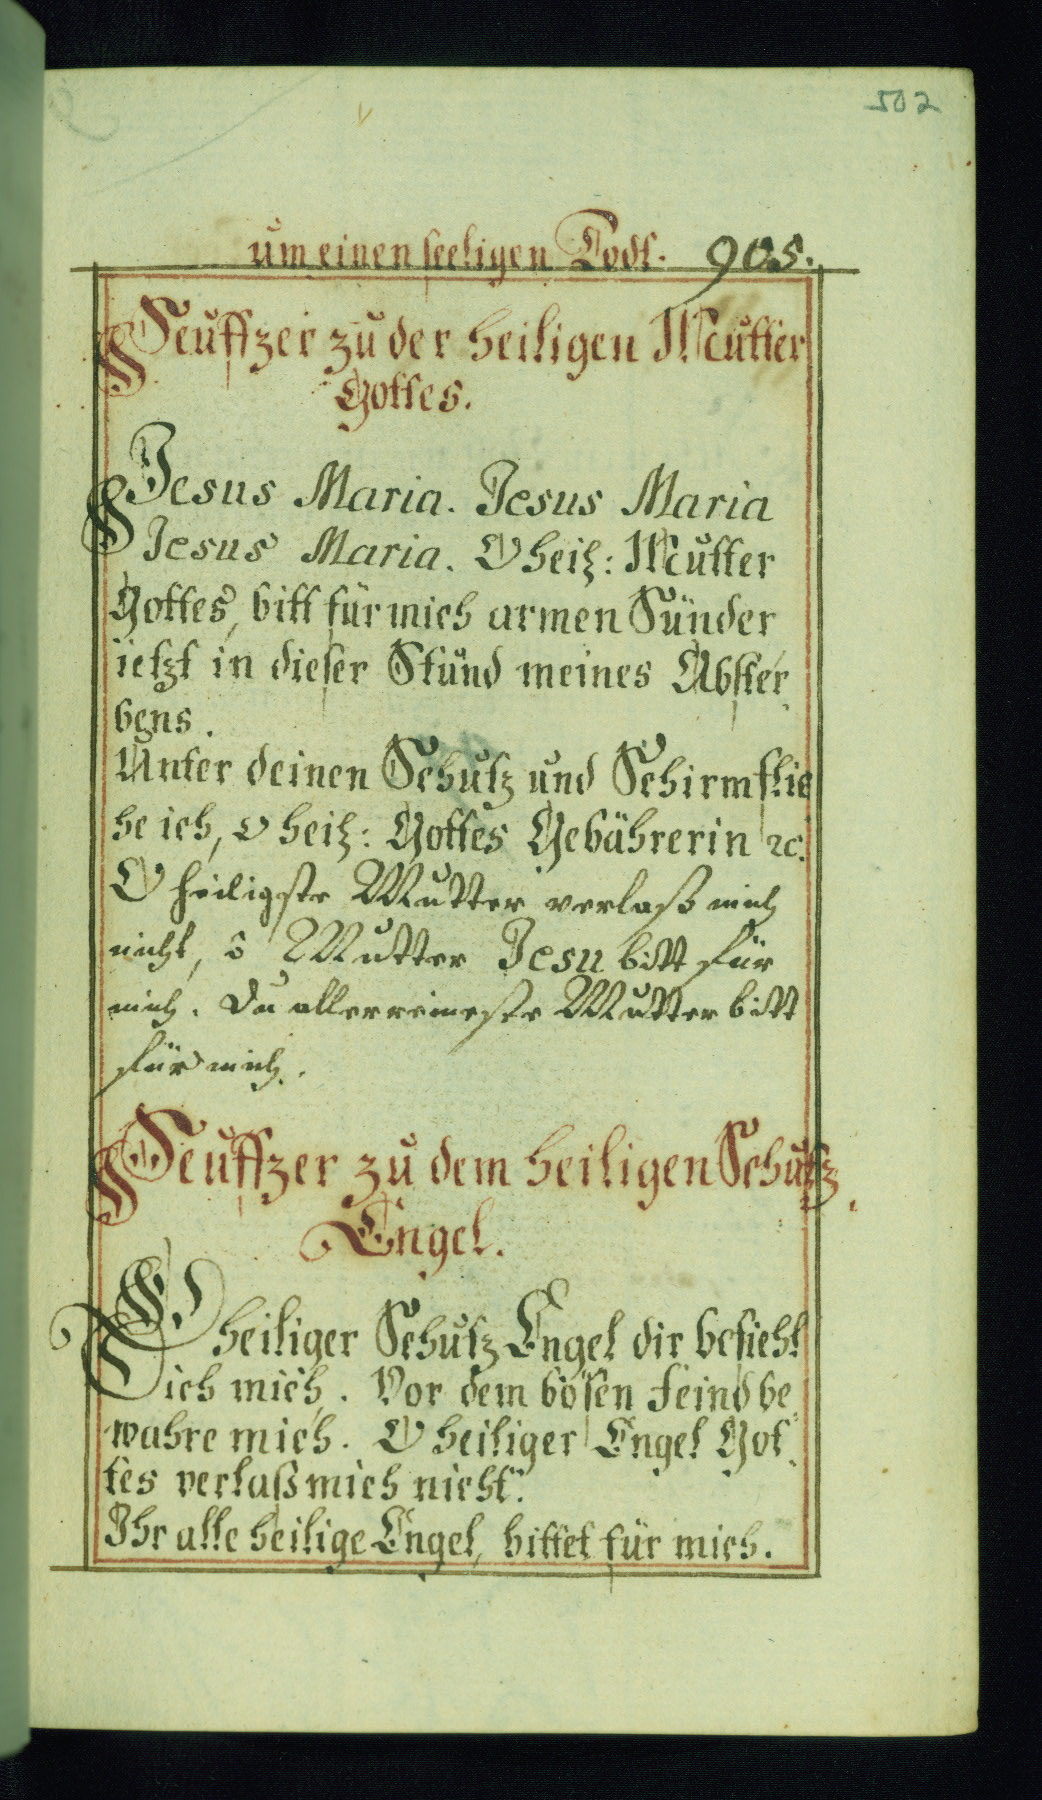 502
um einen seeligen Todt. 905.
Seuffzer zu der heiligen Mutter
Gottes.
Jesus Maria. Jesus Maria
Jesus Maria. O heil: Mutter
Gottes, bitt für mich armen Sünder
ietzt in dieser Stund meines Abster
bens.
Unter deinen Schutz und Schirm flie
he ich, o heil: Gottes Gebährerin ꝛc.
O heiligste Mutter verlaß mich
nicht, ô Mutter Jesu bitt für
mich. Du allerreineste Mutter bitt
für mich.
Seuffzer zu dem heiligen Schutz
Engel.
O heiliger Schutz Engel dir befiehl
ich mich. Vor dem bösen feind be
wahre mich. O heiliger Engel Got
tes verlaß mich nicht.
Ihr alle heilige Engel, bittet für mich.